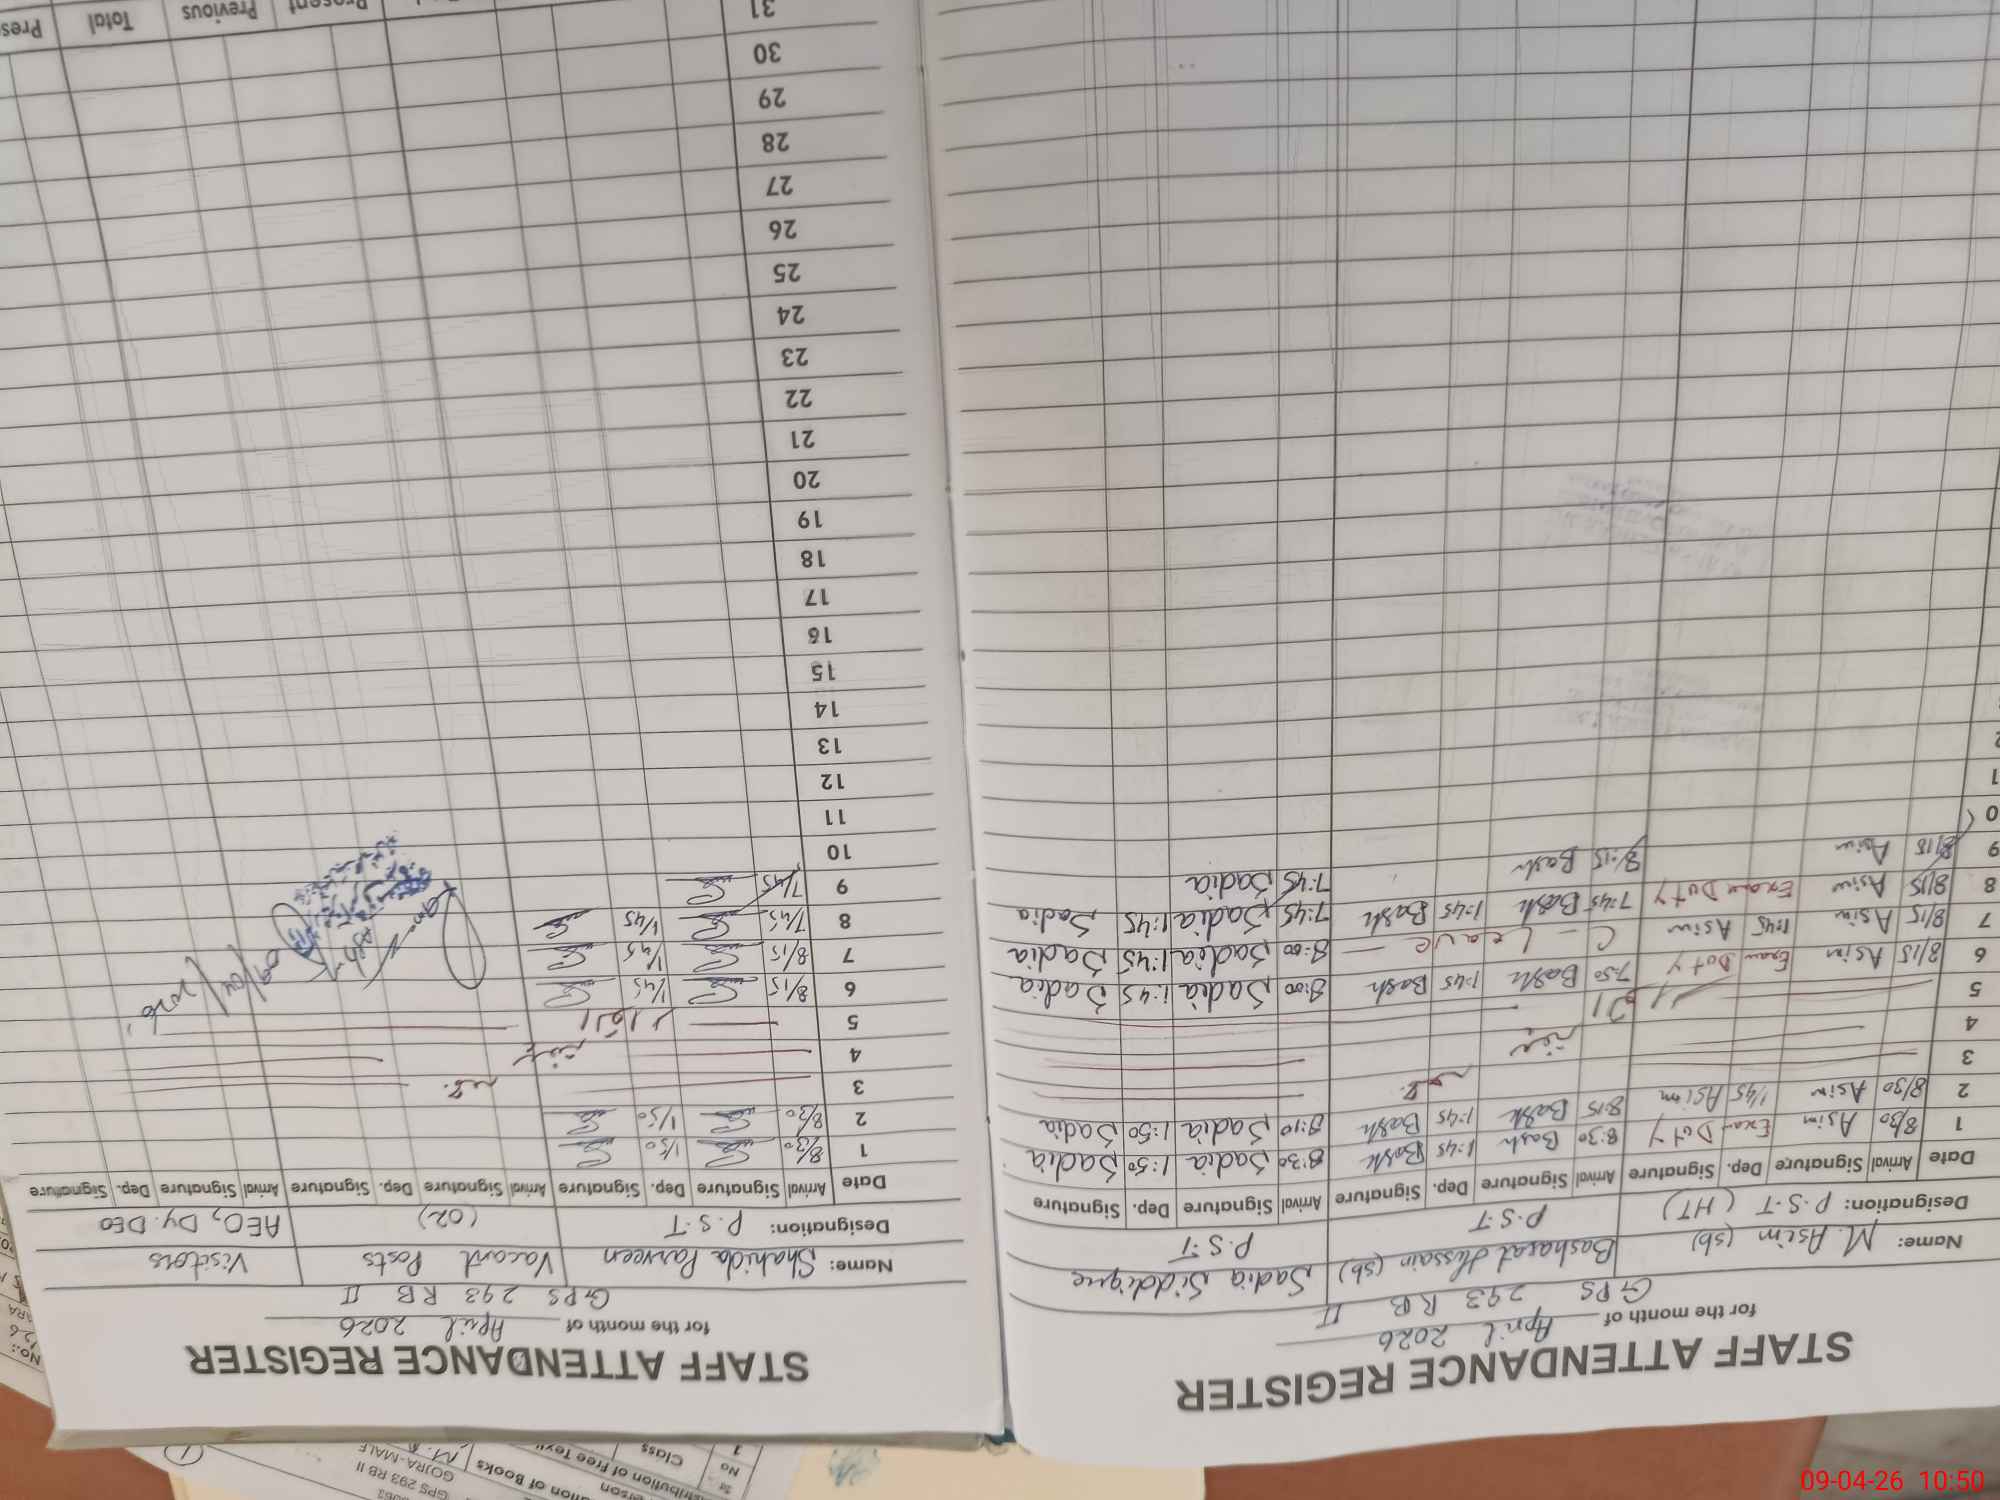 STAFF ATTENDANCE REGISTER
for the month of April 2026
GPS 293 RB II
Name: M. Asim (sb) Basharat Hussain (sb) Sadia Siddique
Designation: P.S.T (HT) P.S.T P.S.T
Date Arrival Signature Dep. Signature Arrival Signature Dep. Signature Arrival Signature Dep. Signature
1 8/30 Asim Exam Duty 8:30 Bash 1:45 Bash 8:30 Sadia 1:50 Sadia
2 8/30 Asim 1/45 Asim 8:15 Bash 1:45 Bash 8:10 Sadia 1:50 Sadia
3
4
5
6 8/15 Asim Exam Duty 7:50 Bash 1:45 Bash 8:00 Sadia 1:45 Sadia
7 8/15 Asim 1:45 Asim C - Leave 8:00 Sadia 1:45 Sadia
8 8/15 Asim Exam Duty 7:45 Bash 1:45 Bash 7:45 Sadia 1:45 Sadia
9 8/15 Asim 8:15 Bash 7:45 Sadia
STAFF ATTENDANCE REGISTER
for the month of April 2026
GPS 293 RB II
Name: Shahida Parveen Vacant Posts Visitors
Designation: P.S.T (02) AEO, Dy. DEO
Date Arrival Signature Dep. Signature Arrival Signature Dep. Signature Arrival Signature Dep. Signature
1 8/30 1/50
2 8/30 1/50
3
4
5
6 8/15 1/45
7 8/15 1/45
8 7/45 1/45
9 7/45
10
11
12
13
14
15
16
17
18
19
20
21
22
23
24
25
26
27
28
29
30
31
Present Previous Total
09/04/2026
No
Class
GPS 293 RB II
GOJRA-MALE
09-04-26 10:50